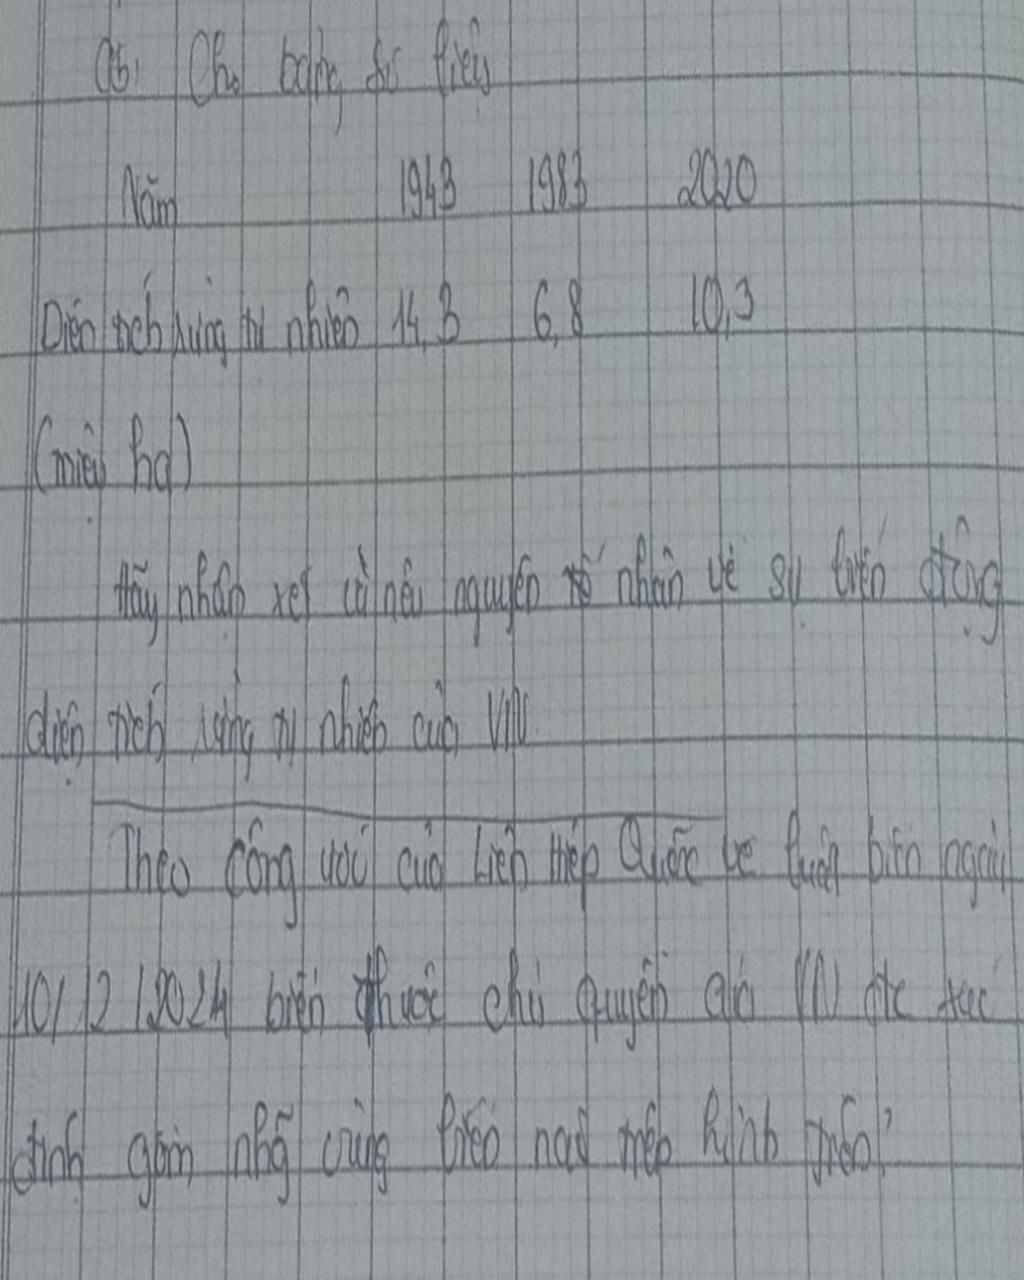 Cho bảng số liệu
Năm 1943 1983 2020
Diện tích rừng tự nhiên 14,3 6,8 10,3
(triệu ha)
Hãy nhận xét và nêu nguyên nhân về sự biến động
diện tích rừng tự nhiên của VN
Theo công ước của Liên Hiệp Quốc về luật biển ngày
10/12/2024 biển thuộc chủ quyền của VN đc xác
định gồm nhg vùng biển nào